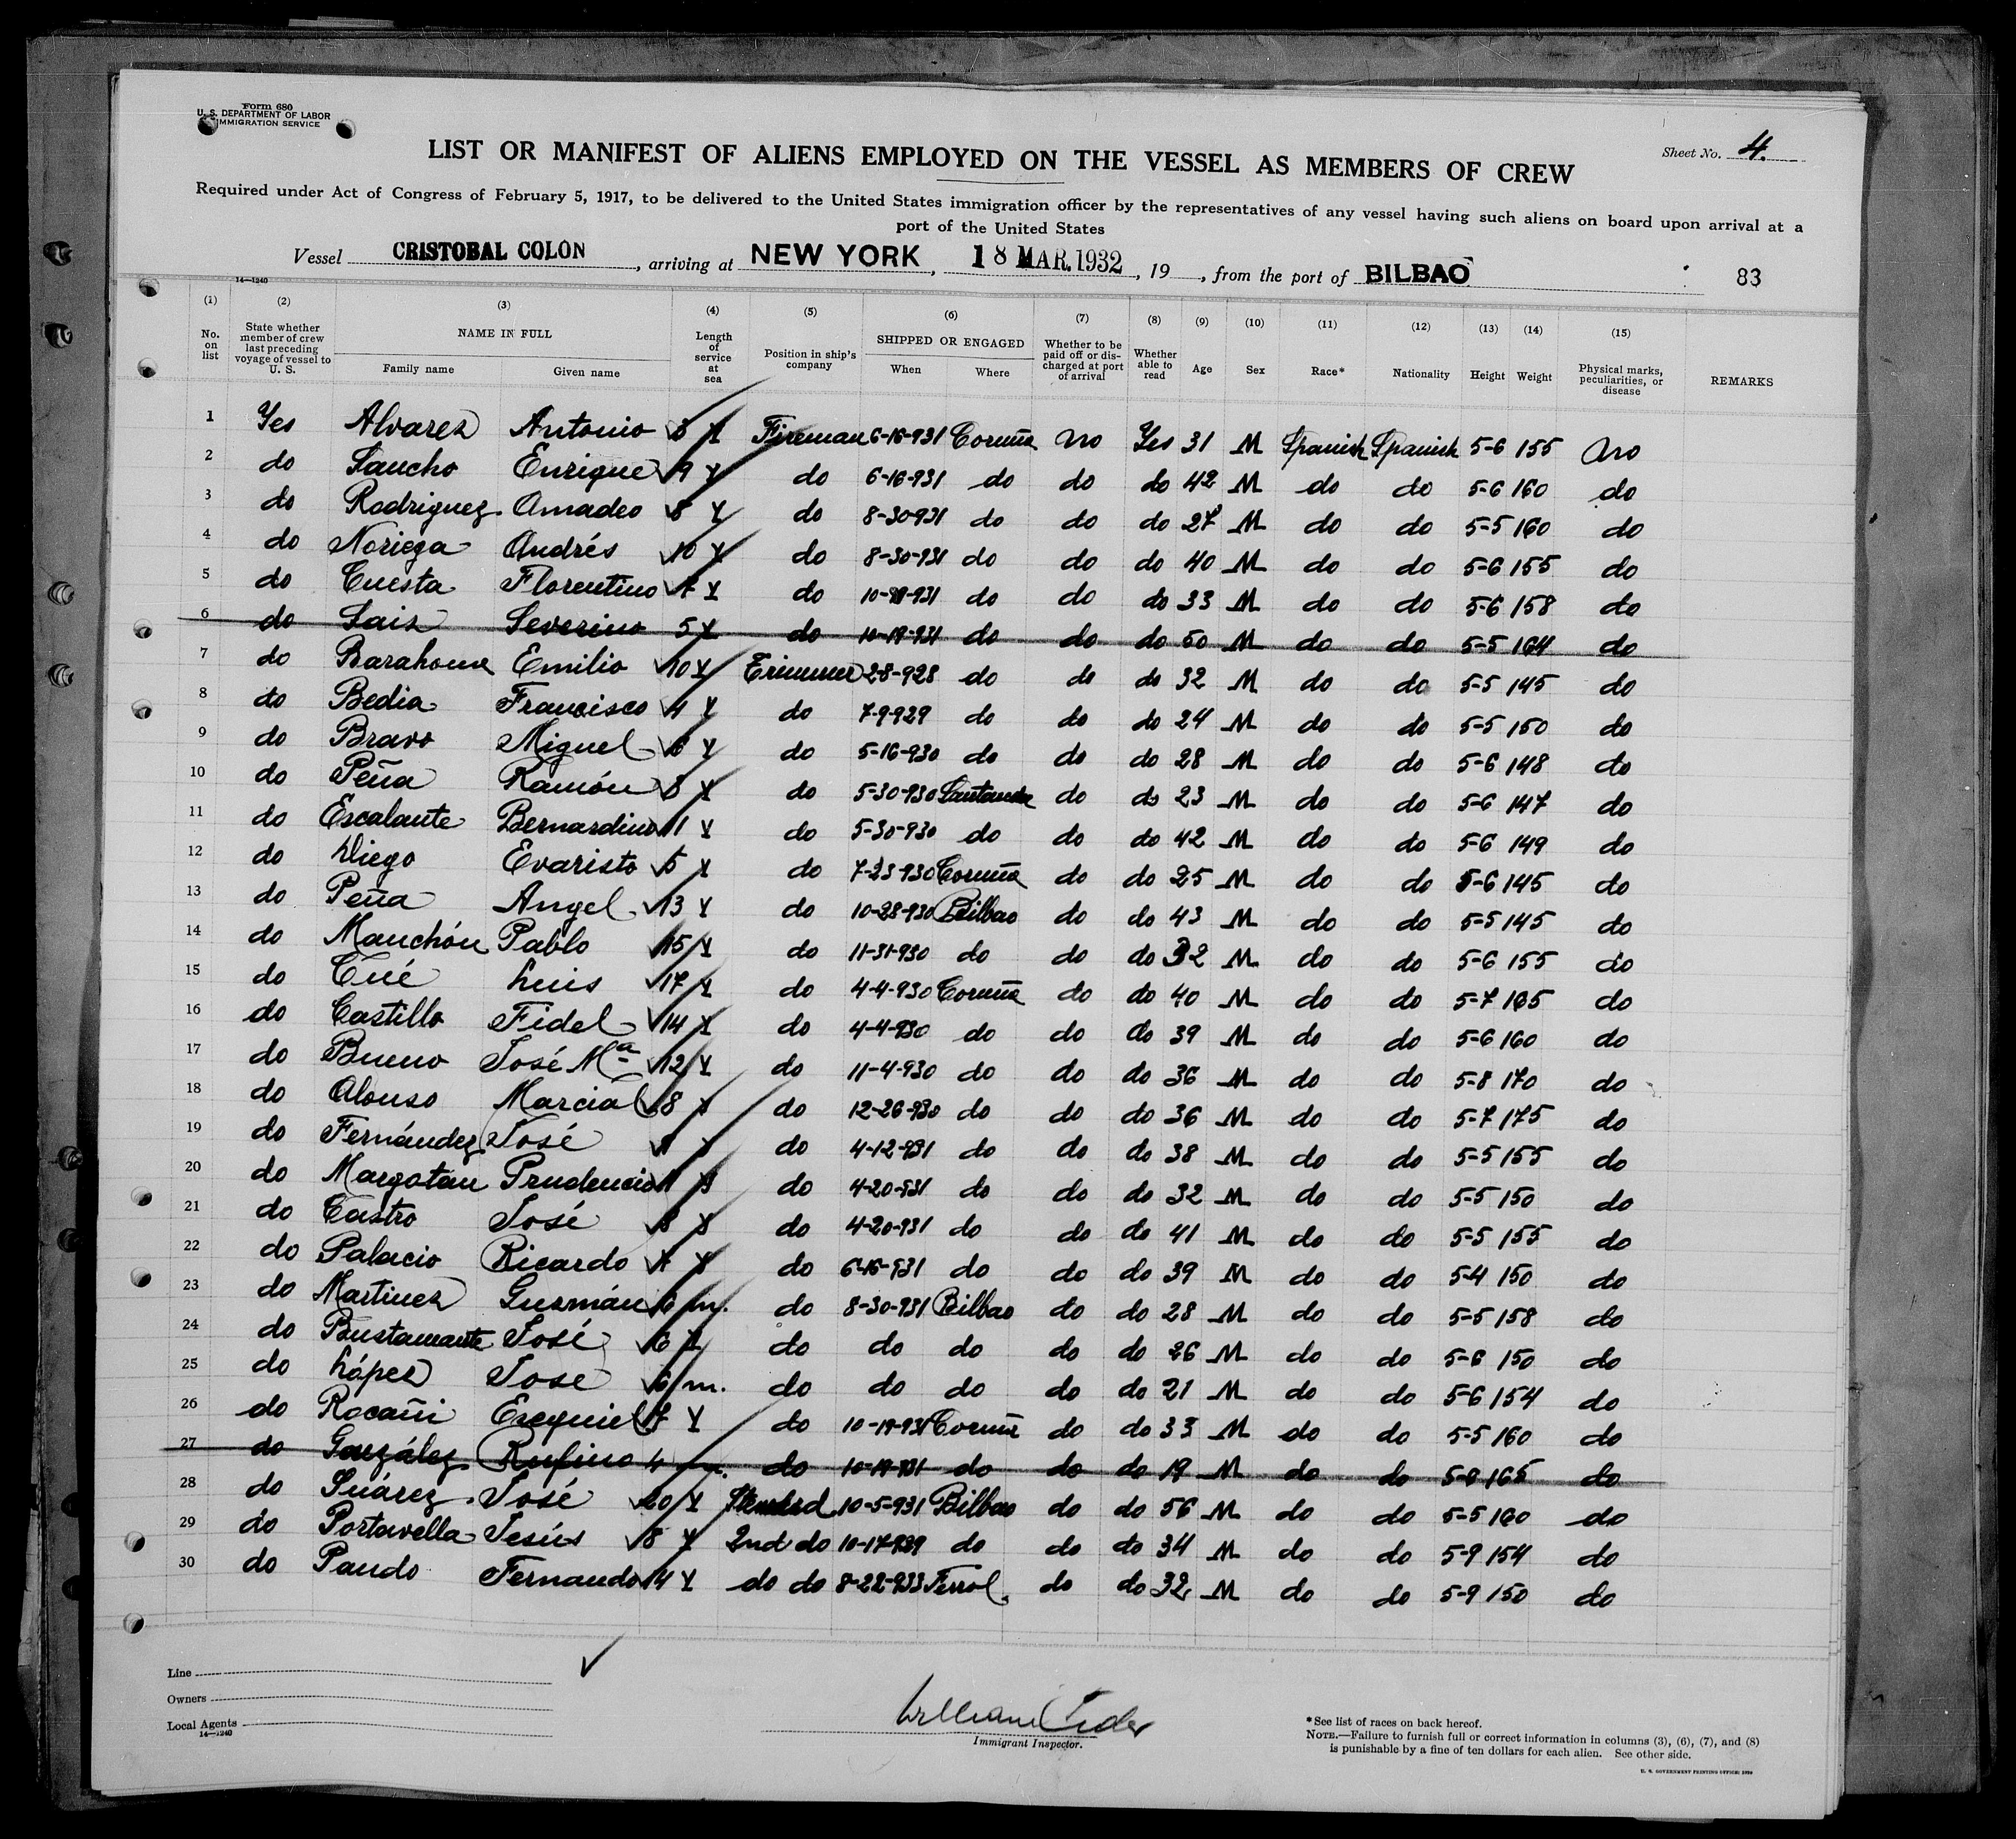 Form 680
U. S. DEPARTMENT OF LABOR
IMMIGRATION SERVICE
Sheet No. 4.
LIST OR MANIFEST OF ALIENS EMPLOYED ON THE VESSEL AS MEMBERS OF CREW
Required under Act of Congress of February 5, 1917, to be delivered to the United States immigration officer by the representatives of any vessel having such aliens on board upon arrival at a
port of the United States
Vessel CRISTOBAL COLON, arriving at NEW YORK, 18 MAR. 1932, 19 , from the port of BILBAO 83
14—1240
(1) (2) (3) (4) (5) (6) (7) (8) (9) (10) (11) (12) (13) (14) (15)
No. on list State whether member of crew last preceding voyage of vessel to U. S. NAME IN FULL Family name Given name Length of service at sea Position in ship's company SHIPPED OR ENGAGED When Where Whether to be paid off or discharged at port of arrival Whether able to read Age Sex Race* Nationality Height Weight Physical marks, peculiarities, or disease REMARKS
1 Yes Alvarez Antonio Y Fireman 6-16-931 Coruña no Yes 31 M Spanish Spanish 5-6 155 no
2 do Sancho Enrique 9 Y do 6-16-931 do do do 42 M do do 5-6 160 do
3 do Rodriguez Amadeo 8 Y do 8-30-931 do do do 27 M do do 5-5 160 do
4 do Noriega Andrés 10 Y do 8-30-931 do do do 40 M do do 5-6 155 do
5 do Cuesta Florentino 7 Y do do do do 33 M do do 5-6 158 do
6 do Saiz Severino 5 Y do 10-19-931 do do do 50 M do do 5-5 164 do
7 do Barahona Emilio 10 Y Trimmer 2-8-928 do do do 32 M do do 5-5 145 do
8 do Bedia Francisco 4 Y do 7-9-929 do do do 24 M do do 5-5 150 do
9 do Bravo Miguel 6 Y do 5-16-930 do do do 28 M do do 5-6 148 do
10 do Peña Ramón Y do 5-30-930 Santander do do 23 M do do 5-6 147 do
11 do Escalante Bernardino 11 Y do 5-30-930 do do do 42 M do do 5-6 149 do
12 do Diego Evaristo 5 Y do 7-23-930 Coruña do do 25 M do do 5-6 145 do
13 do Peña Angel 13 Y do 10-28-930 Bilbao do do 43 M do do 5-5 145 do
14 do Manchón Pablo 15 Y do 11-31-930 do do do 32 M do do 5-6 155 do
15 do Cué Luis 17 Y do 4-4-930 Coruña do do 40 M do do 5-7 165 do
16 do Castillo Fidel 14 Y do 4-4-930 do do do 39 M do do 5-6 160 do
17 do Bueno José Mª 12 Y do 11-4-930 do do do 36 M do do 5-8 170 do
18 do Alonso Marcial 8 Y do 12-26-930 do do do 36 M do do 5-7 175 do
19 do Fernández José Y do 4-12-931 do do do 38 M do do 5-5 155 do
20 do Margotan Prudencio Y do 4-20-931 do do do 32 M do do 5-5 150 do
21 do Castro José 8 Y do 4-20-931 do do do 41 M do do 5-5 155 do
22 do Palacio Ricardo Y do 6-16-931 do do do 39 M do do 5-4 150 do
23 do Martinez Guzmán 6 m. do 8-30-931 Bilbao do do 28 M do do 5-5 158 do
24 do Bustamante José 6 Y do do do do do 26 M do do 5-6 150 do
25 do López Jose 6 m. do do do do do 21 M do do 5-6 154 do
26 do Rocañi Ezequiel 7 Y do 10-19-931 Coruña do do 33 M do do 5-5 160 do
27 do González Rufino 4 m. do 10-19-931 do do do 19 M do do 165 do
28 do Suárez José 20 Y Steward 10-5-931 Bilbao do do 56 M do do 5-5 160 do
29 do Portavella Jesús 8 Y 2nd do do do do 34 M do do 5-9 154 do
30 do Pando Fernando 14 Y do do Ferrol. do do 32 M do do 5-9 150 do
Line
Owners
Local Agents
14—1240
William
Immigrant Inspector.
*See list of races on back hereof.
NOTE.—Failure to furnish full or correct information in columns (3), (6), (7), and (8)
is punishable by a fine of ten dollars for each alien. See other side.